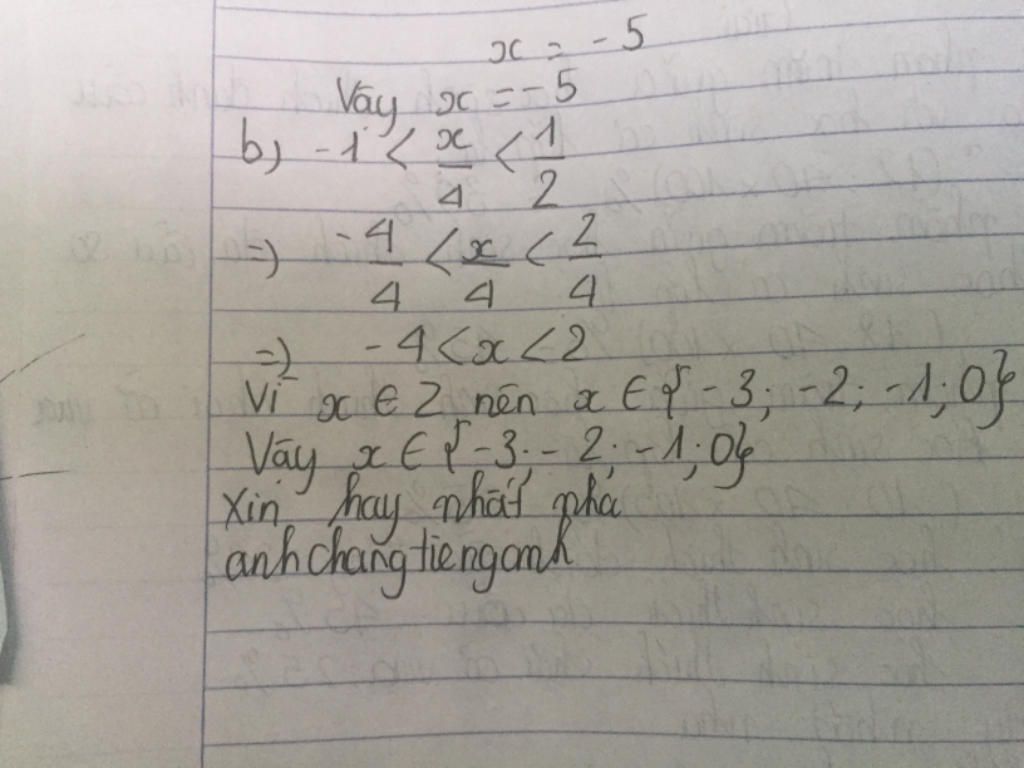 x = -5
Vậy x = -5
b) -1 < x/4 < 1/2
=) -4/4 < x/4 < 2/4
=) -4 < x < 2
Vì x ∈ Z nên x ∈ {-3; -2; -1; 0}
Vậy x ∈ {-3; -2; -1; 0}
Xin hay nhất nhá
anhchangtienganh